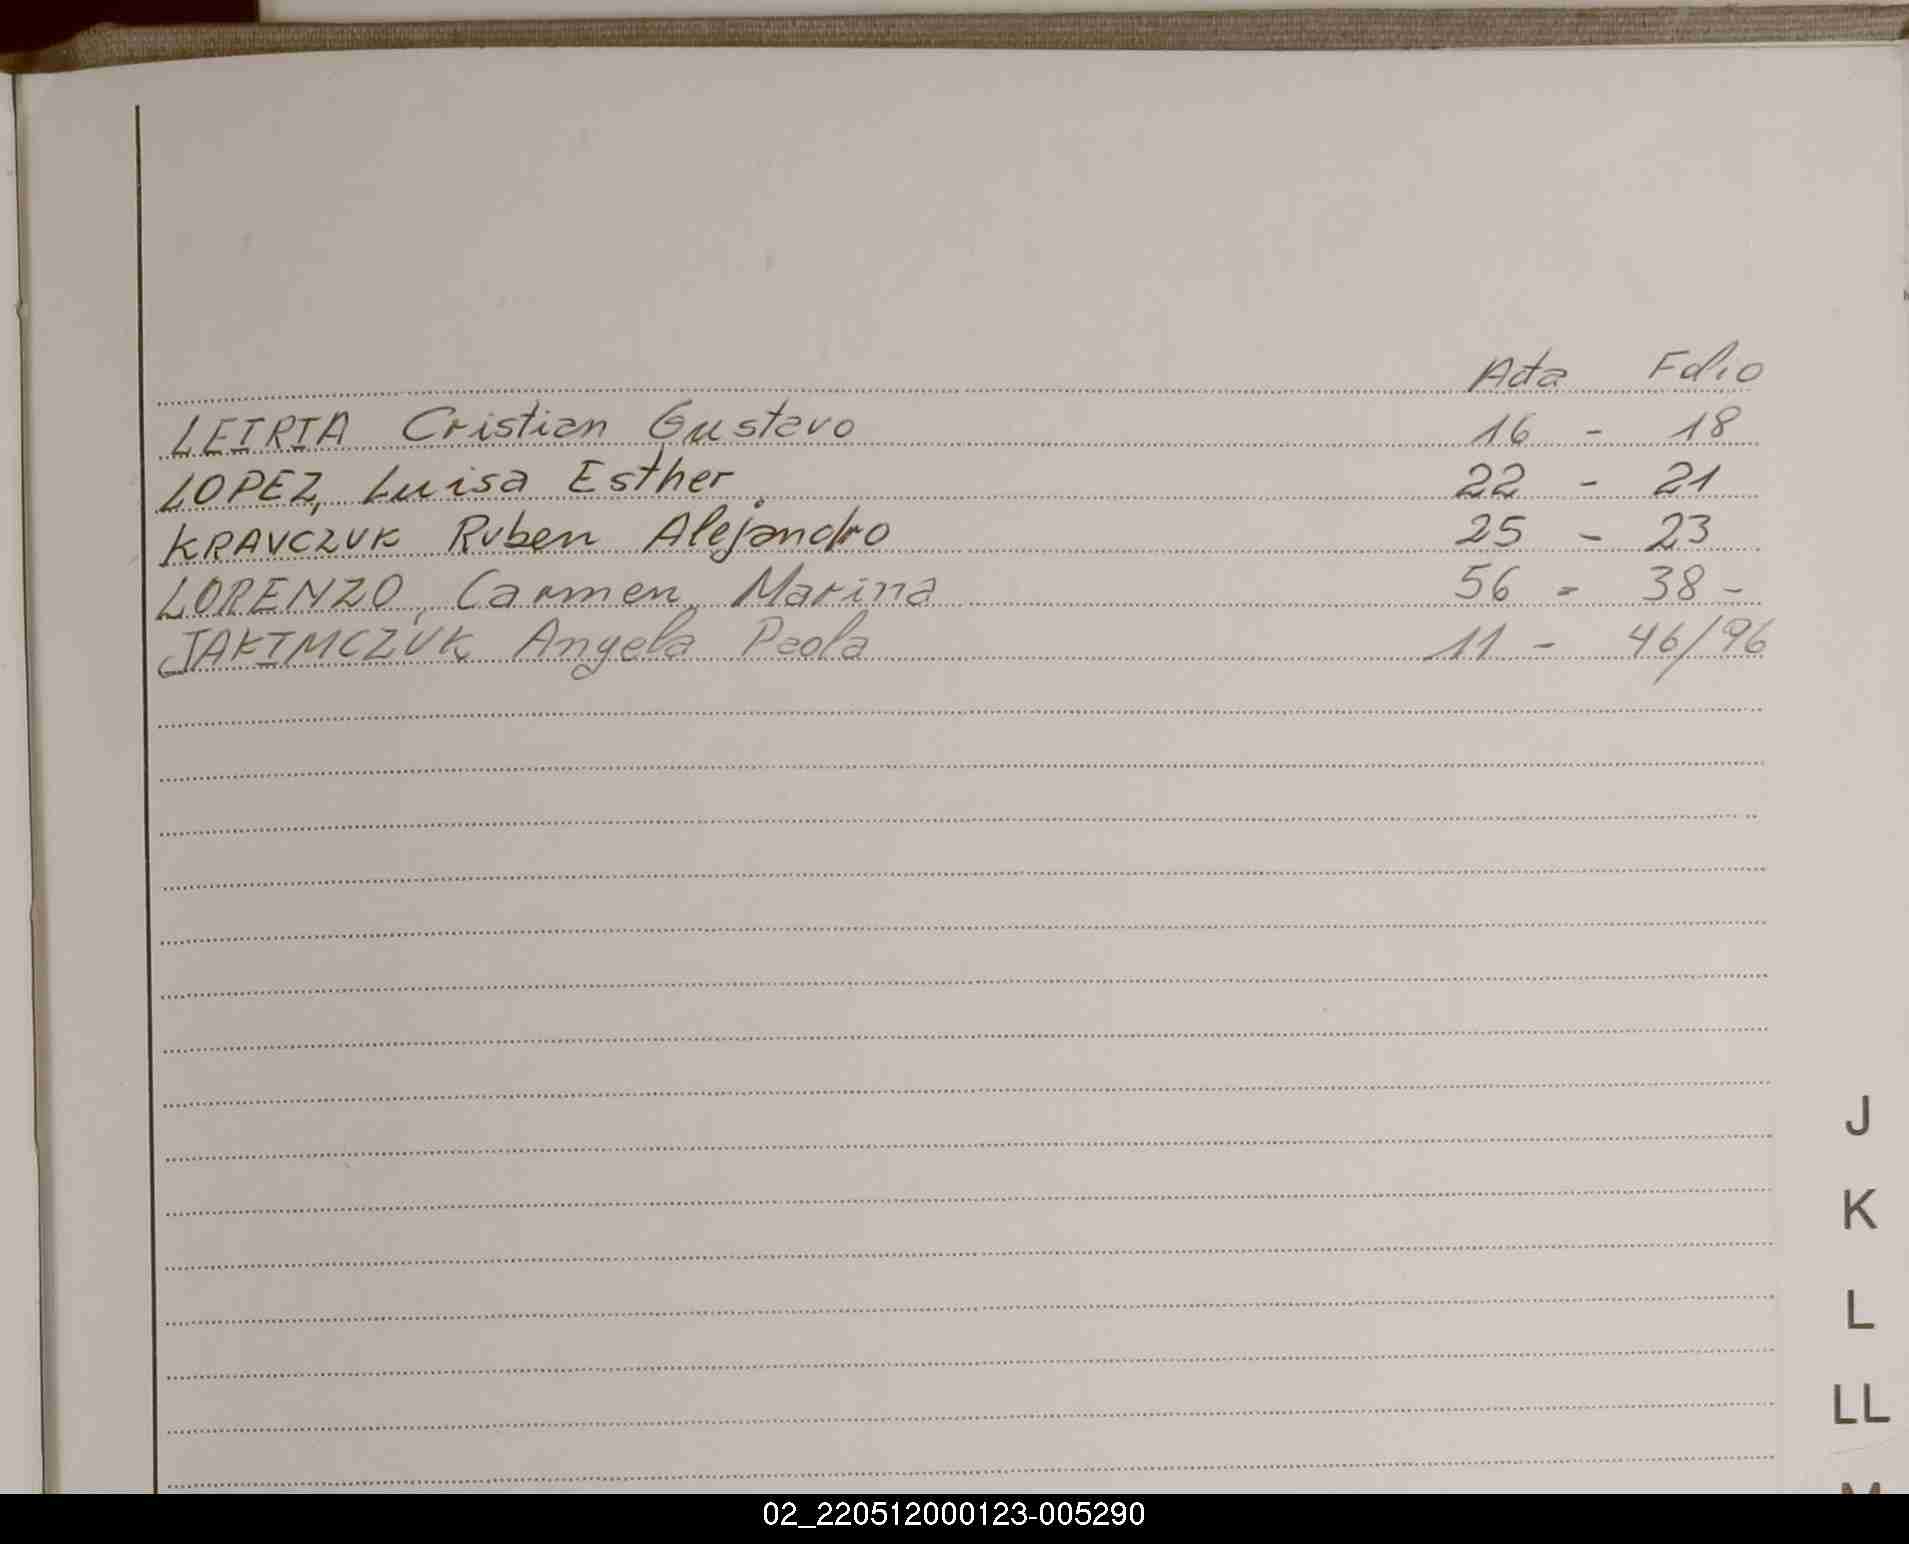 Acta Folio
LEIRIA Cristian Gustavo 16 - 18
LOPEZ, Luisa Esther 22 - 21
KRAVCZUK Ruben Alejandro 25 - 23
LORENZO, Carmen Marina 56 - 38 -
JAKIMCZUK Angela Paola 11 - 46/96
J
K
L
LL
M
02_220512000123-005290